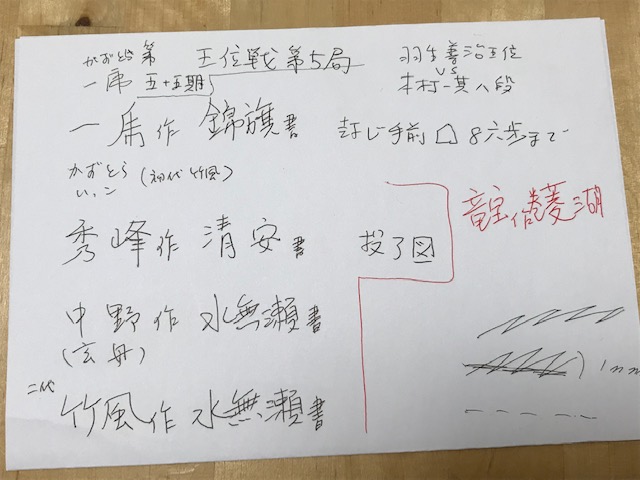 かずとら 第
王位戦 第5局
羽生善治王位
一席 五十五期
VS
木村一基八段
一虎作 錦旗書
封じ手前 ☖ 8六歩まで
かずとら
いっこ (初代 竹風)
竜王作 菱湖
秀峰作 清安書
投了図
中野作 水無瀬書
(玄舟)
1mm
二代
竹風作 水無瀬書